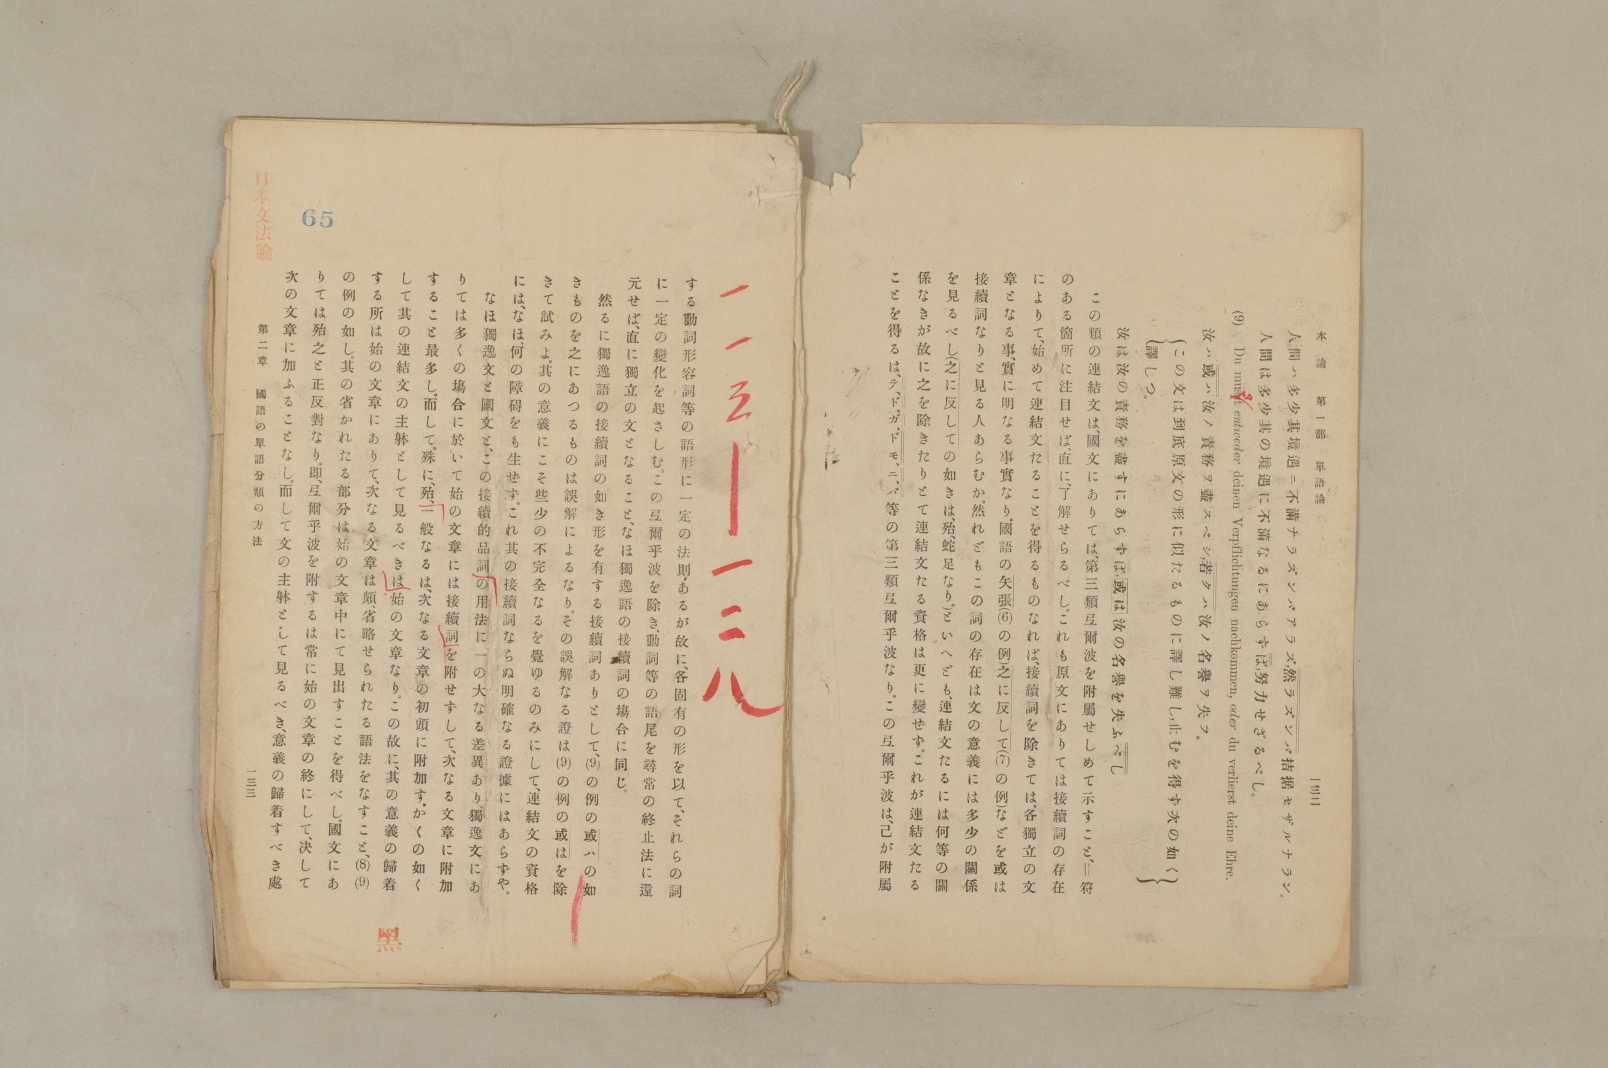 本論　第一編　單語論
一三二
人間ハ多少其境遇ニ不滿ナラズンバアラズ、然ラズンバ拮据セザルナラン。
人間は多少其の境遇に不滿なるにあらずば、努力せざるべし。
(9) Du musst entweder deinen Verpflichtungen nachkommen, oder du verlierst deine Ehre.
汝ハ或ハ汝ノ責務ヲ盡スベシ、若クハ汝ノ名譽ヲ失フ。
(この文は到底原文の形に似たるものに譯し難し、止むを得ず次の如く
譯しつ。)
汝は汝の責務を盡すにあらずば、或は汝の名譽を失ふべし
この類の連結文は國文にありては、第三類弖爾波を附屬せしめて示すこと、＝符
のある箇所に注目せば、直に了解せらるべし。これも原文にありては接續詞の存在
によりて、始めて連結文たることを得るものなれば、接續詞を除きては、各獨立の文
章となる事、實に明なる事實なり。國語の矢張(6)の例)之に反して(7)の例)などを或は
接續詞なりと見る人あらむか。然れどもこの詞の存在は文の意義には多少の關係
を見るべし(之に反しての如きは、殆、蛇足なり。)といへども、連結文たるには何等の關
係なきが故に之を除きたりとて連結文たる資格は更に變せず。これが連結文たる
ことを得るは、テ、ド、ガ、ドモ、ニ、バ等の第三類弖爾乎波なり。この弖爾乎波は、己が附屬
一一三—一二八
する動詞形容詞等の語形に一定の法則あるが故に、各固有の形を以て、それらの詞
に一定の變化を起さしむ。この弖爾乎波を除き、動詞等の語尾を尋常の終止法に還
元せば、直に獨立の文となること、なほ獨逸語の接續詞の塲合に同じ。
然るに獨逸語の接續詞の如き形を有する接續詞ありとして、(9)の例の或ハの如
きものを之にあつるものは誤解によるなり。その誤解なる證は(9)の例の或はを除
きて試みよ。其の意義にこそ些少の不完全なるを覺ゆるのみにして、連結文の資格
には、なほ、何の障碍をも生せず。これ其の接續詞ならぬ明確なる證據にはあらずや。
なほ獨逸文と國文と、この接續的品詞の用法に一の大なる差異あり。獨逸文にあ
りては多くの塲合に於いて始の文章には接續詞を附せずして、次なる文章に附加
すること最多し。而して、殊に、殆、一般なるは、次なる文章の初頭に附加す。かくの如く
して其の連結文の主躰として見るべきは始の文章なり。この故に、其の意義の歸着
する所は始の文章にありて、次なる文章は頗、省略せられたる語法をなすこと、(8)(9)
の例の如し。其の省かれたる部分は、始の文章中にて見出すことを得べし。國文にあ
りては殆之と正反對なり。即、弖爾乎波を附するは常に始の文章の終にして、決して
次の文章に加ふることなし。而して文の主躰として見るべき、意義の歸着すべき處
第二章　國語の單語分類の方法
一三三
65
日本文法論
黑